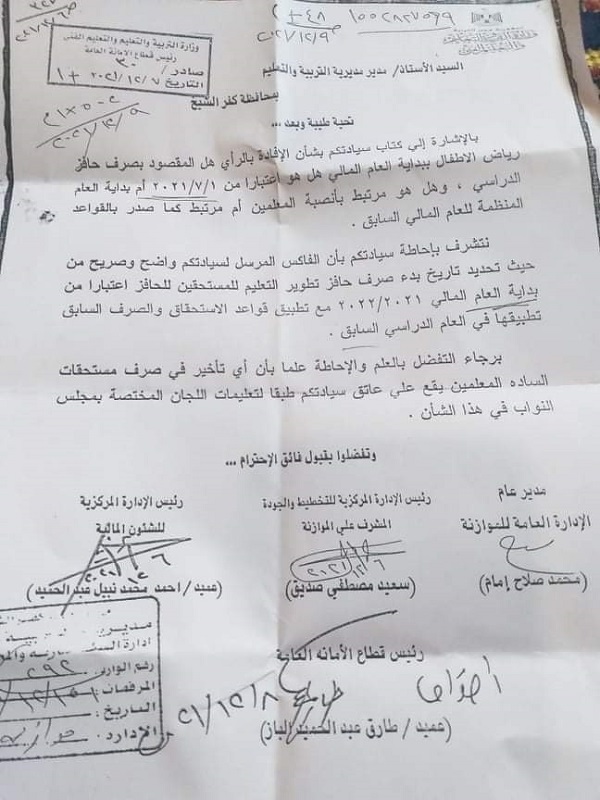 وزارة التربية والتعليم والتعليم الفنى
رئيس قطاع الأمانة العامة
صادر / ٣٠
التاريخ ٢٠٢١/١٢/٧
السيد الأستاذ/ مدير مديرية التربية والتعليم
بمحافظة كفر الشيخ
تحية طيبة وبعد ...
بالإشارة إلي كتاب سيادتكم بشأن الإفادة بالرأي هل المقصود بصرف حافز
رياض الاطفال ببداية العام المالي هل هو اعتبارا من ٢٠٢١/٧/١ أم بداية العام
الدراسي ، وهل هو مرتبط بأنصبة المعلمين أم مرتبط كما صدر بالقواعد
المنظمة للعام المالي السابق .
نتشرف بإحاطة سيادتكم بأن الفاكس المرسل لسيادتكم واضح وصريح من
حيث تحديد تاريخ بدء صرف حافز تطوير التعليم للمستحقين للحافز اعتبارا من
بداية العام المالي ٢٠٢٢/٢٠٢١ مع تطبيق قواعد الاستحقاق والصرف السابق
تطبيقها في العام الدراسي السابق .
برجاء التفضل بالعلم والإحاطة علما بأن أي تأخير في صرف مستحقات
الساده المعلمين يقع علي عاتق سيادتكم طبقا لتعليمات اللجان المختصة بمجلس
النواب في هذا الشأن .
وتفضلوا بقبول فائق الإحترام ...
مدير عام
الإدارة العامة للموازنة
(محمد صلاح إمام)
رئيس الإدارة المركزية للتخطيط والجودة
المشرف علي الموازنة
(سعيد مصطفي صديق)
رئيس الإدارة المركزية
للشئون المالية
(عميد/ احمد محمد نبيل عبد الحميد)
رئيس قطاع الأمانه العامة
٢١/١٢/٨
(عميد/ طارق عبد الحميد الباز)
رقم الوارد
٢٩٢
المرفقات :
التاريخ :
الإدارد :